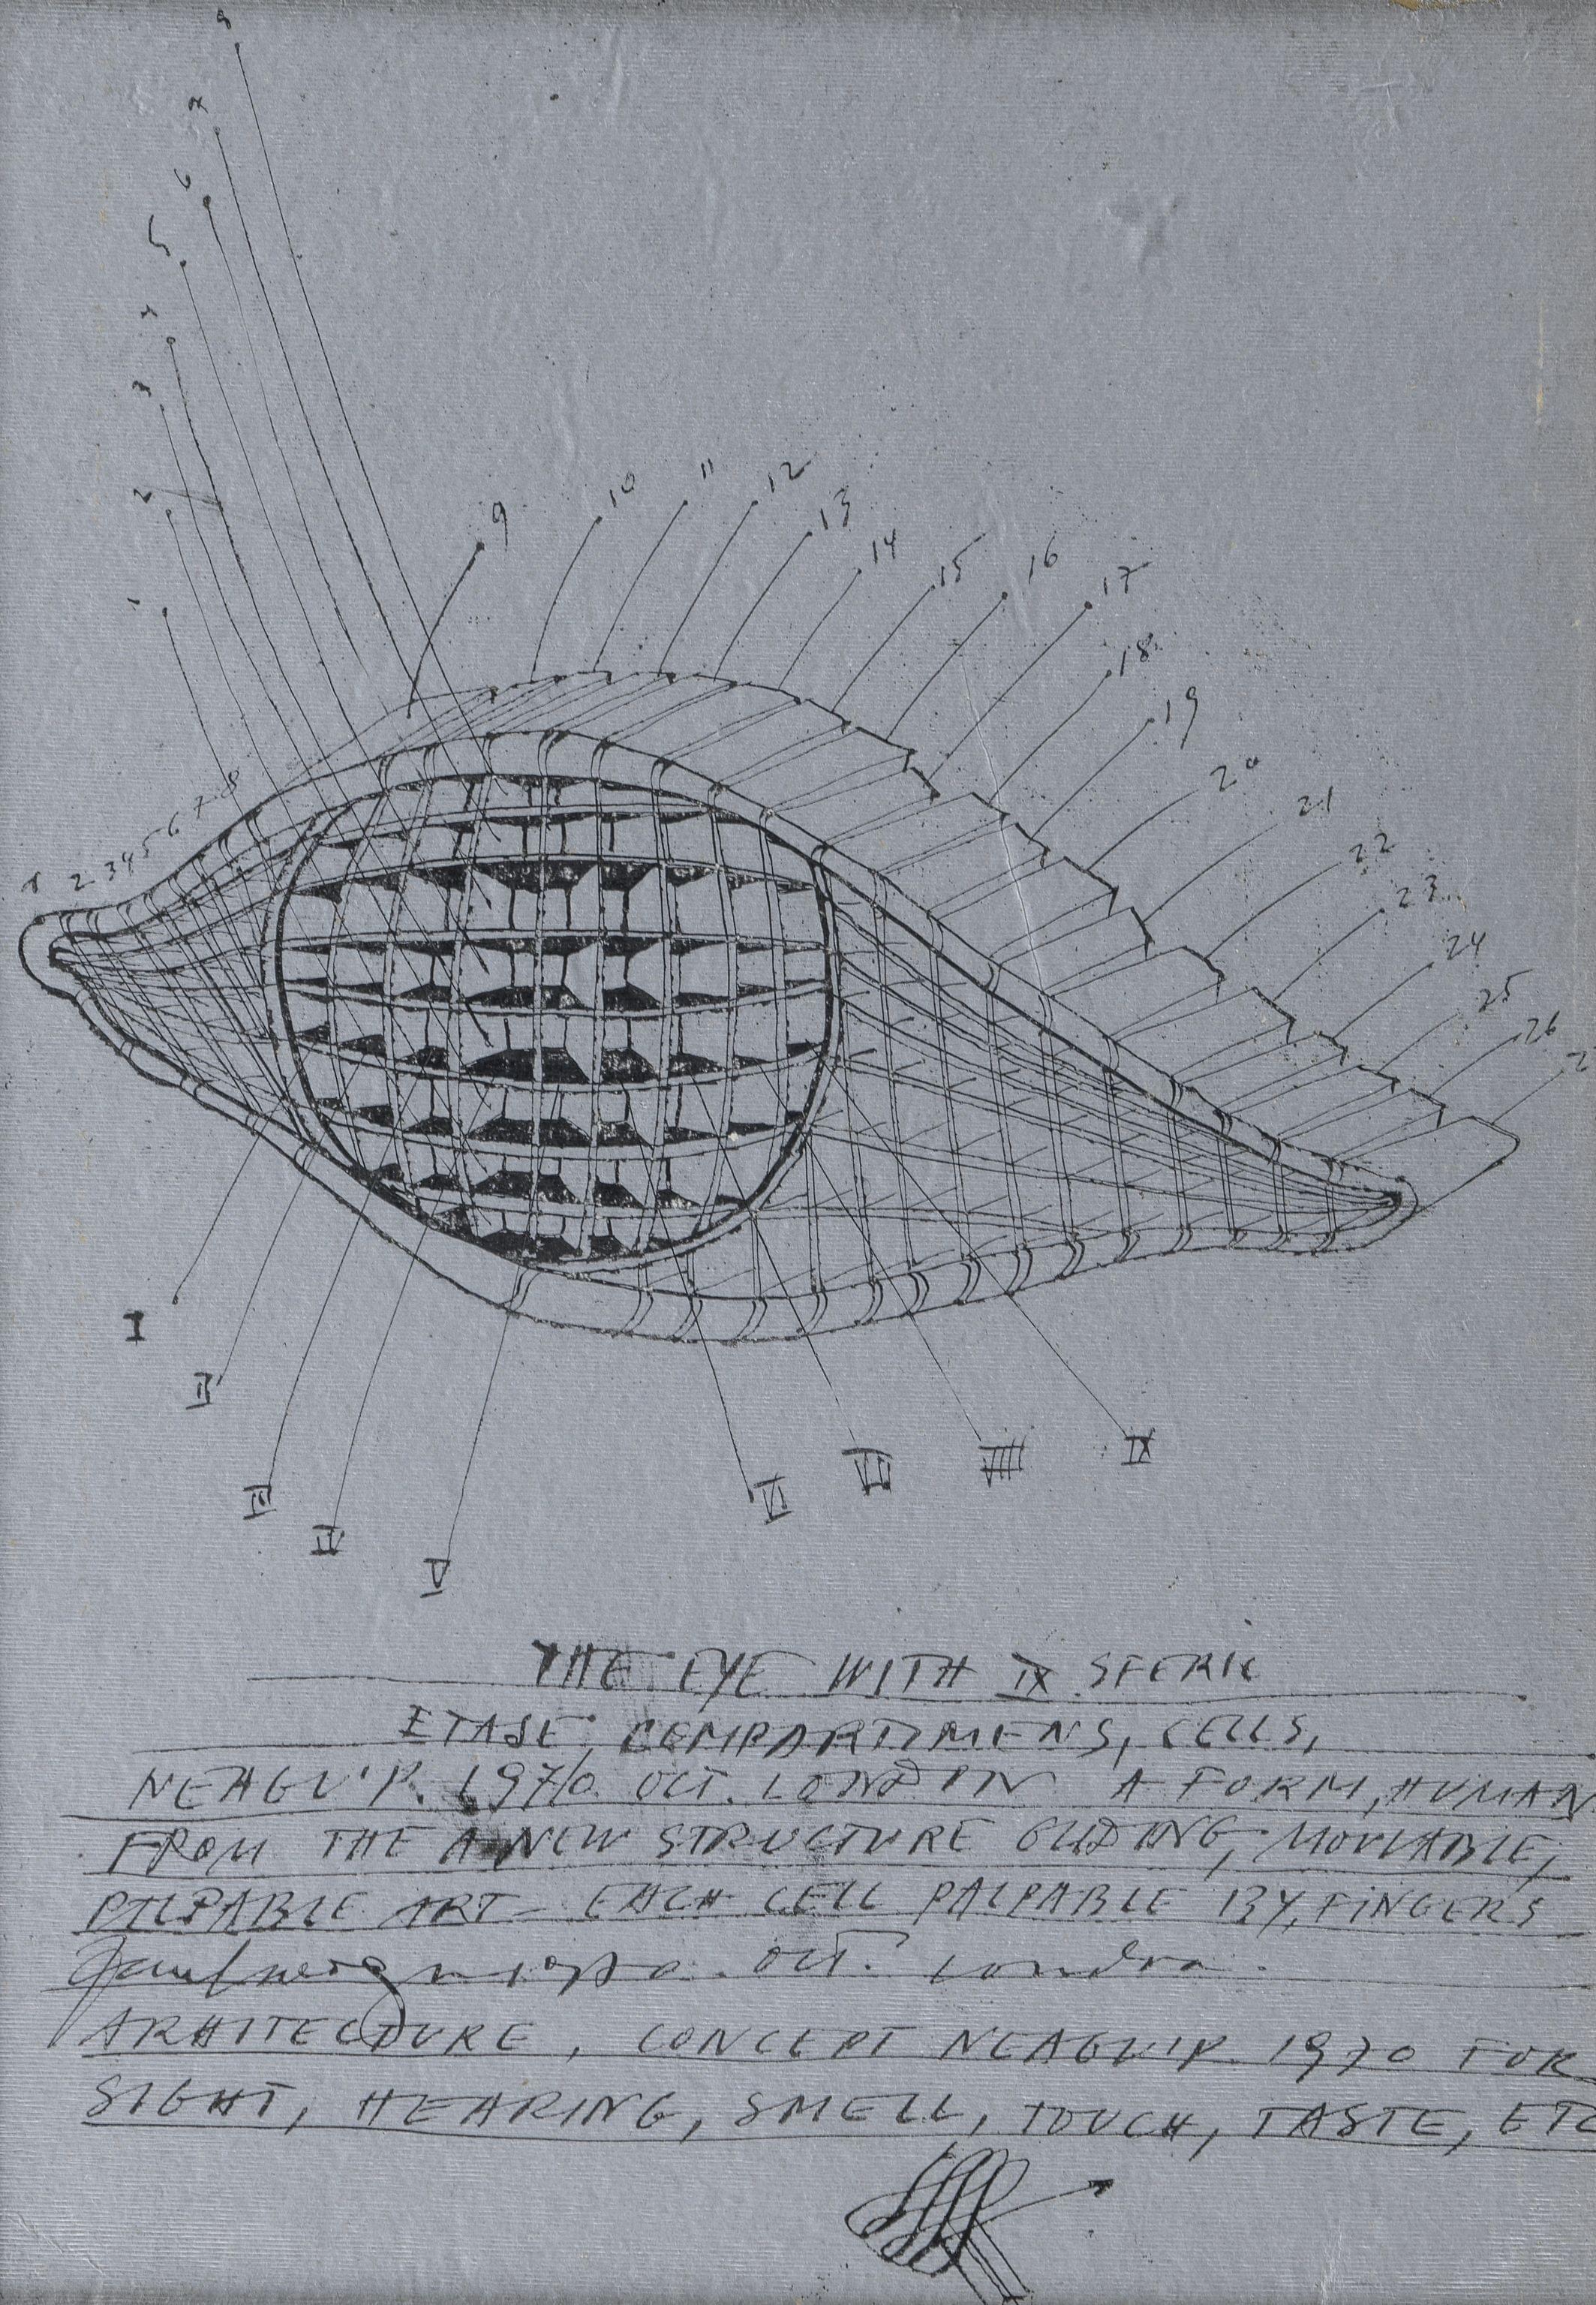 8
7
6
5
4
3
2
1
9 10 11 12 13 14 15 16 17 18 19 20 21 22 23 24 25 26
1 2 3 4 5 6 7 8
I II III IV V VI VII VIIII IX
THE EYE WITH IX SFERIC
ETAJE, COMPARTIMENS, CELLS,
NEAGU'P. 1970. OCT. LONDON A FORM, HUMAN
FROM THE A NEW STRUCTURE GLIDING, MOUVABLE,
PALPABLE ART - EACH CELL PALPABLE BY, FINGERS
Paul neagu 1970. oct. Londra.
ARHITECTURE, CONCEPT NEAGU'P. 1970 FOR
SIGHT, HEARING, SMELL, TOUCH, TASTE, ETC